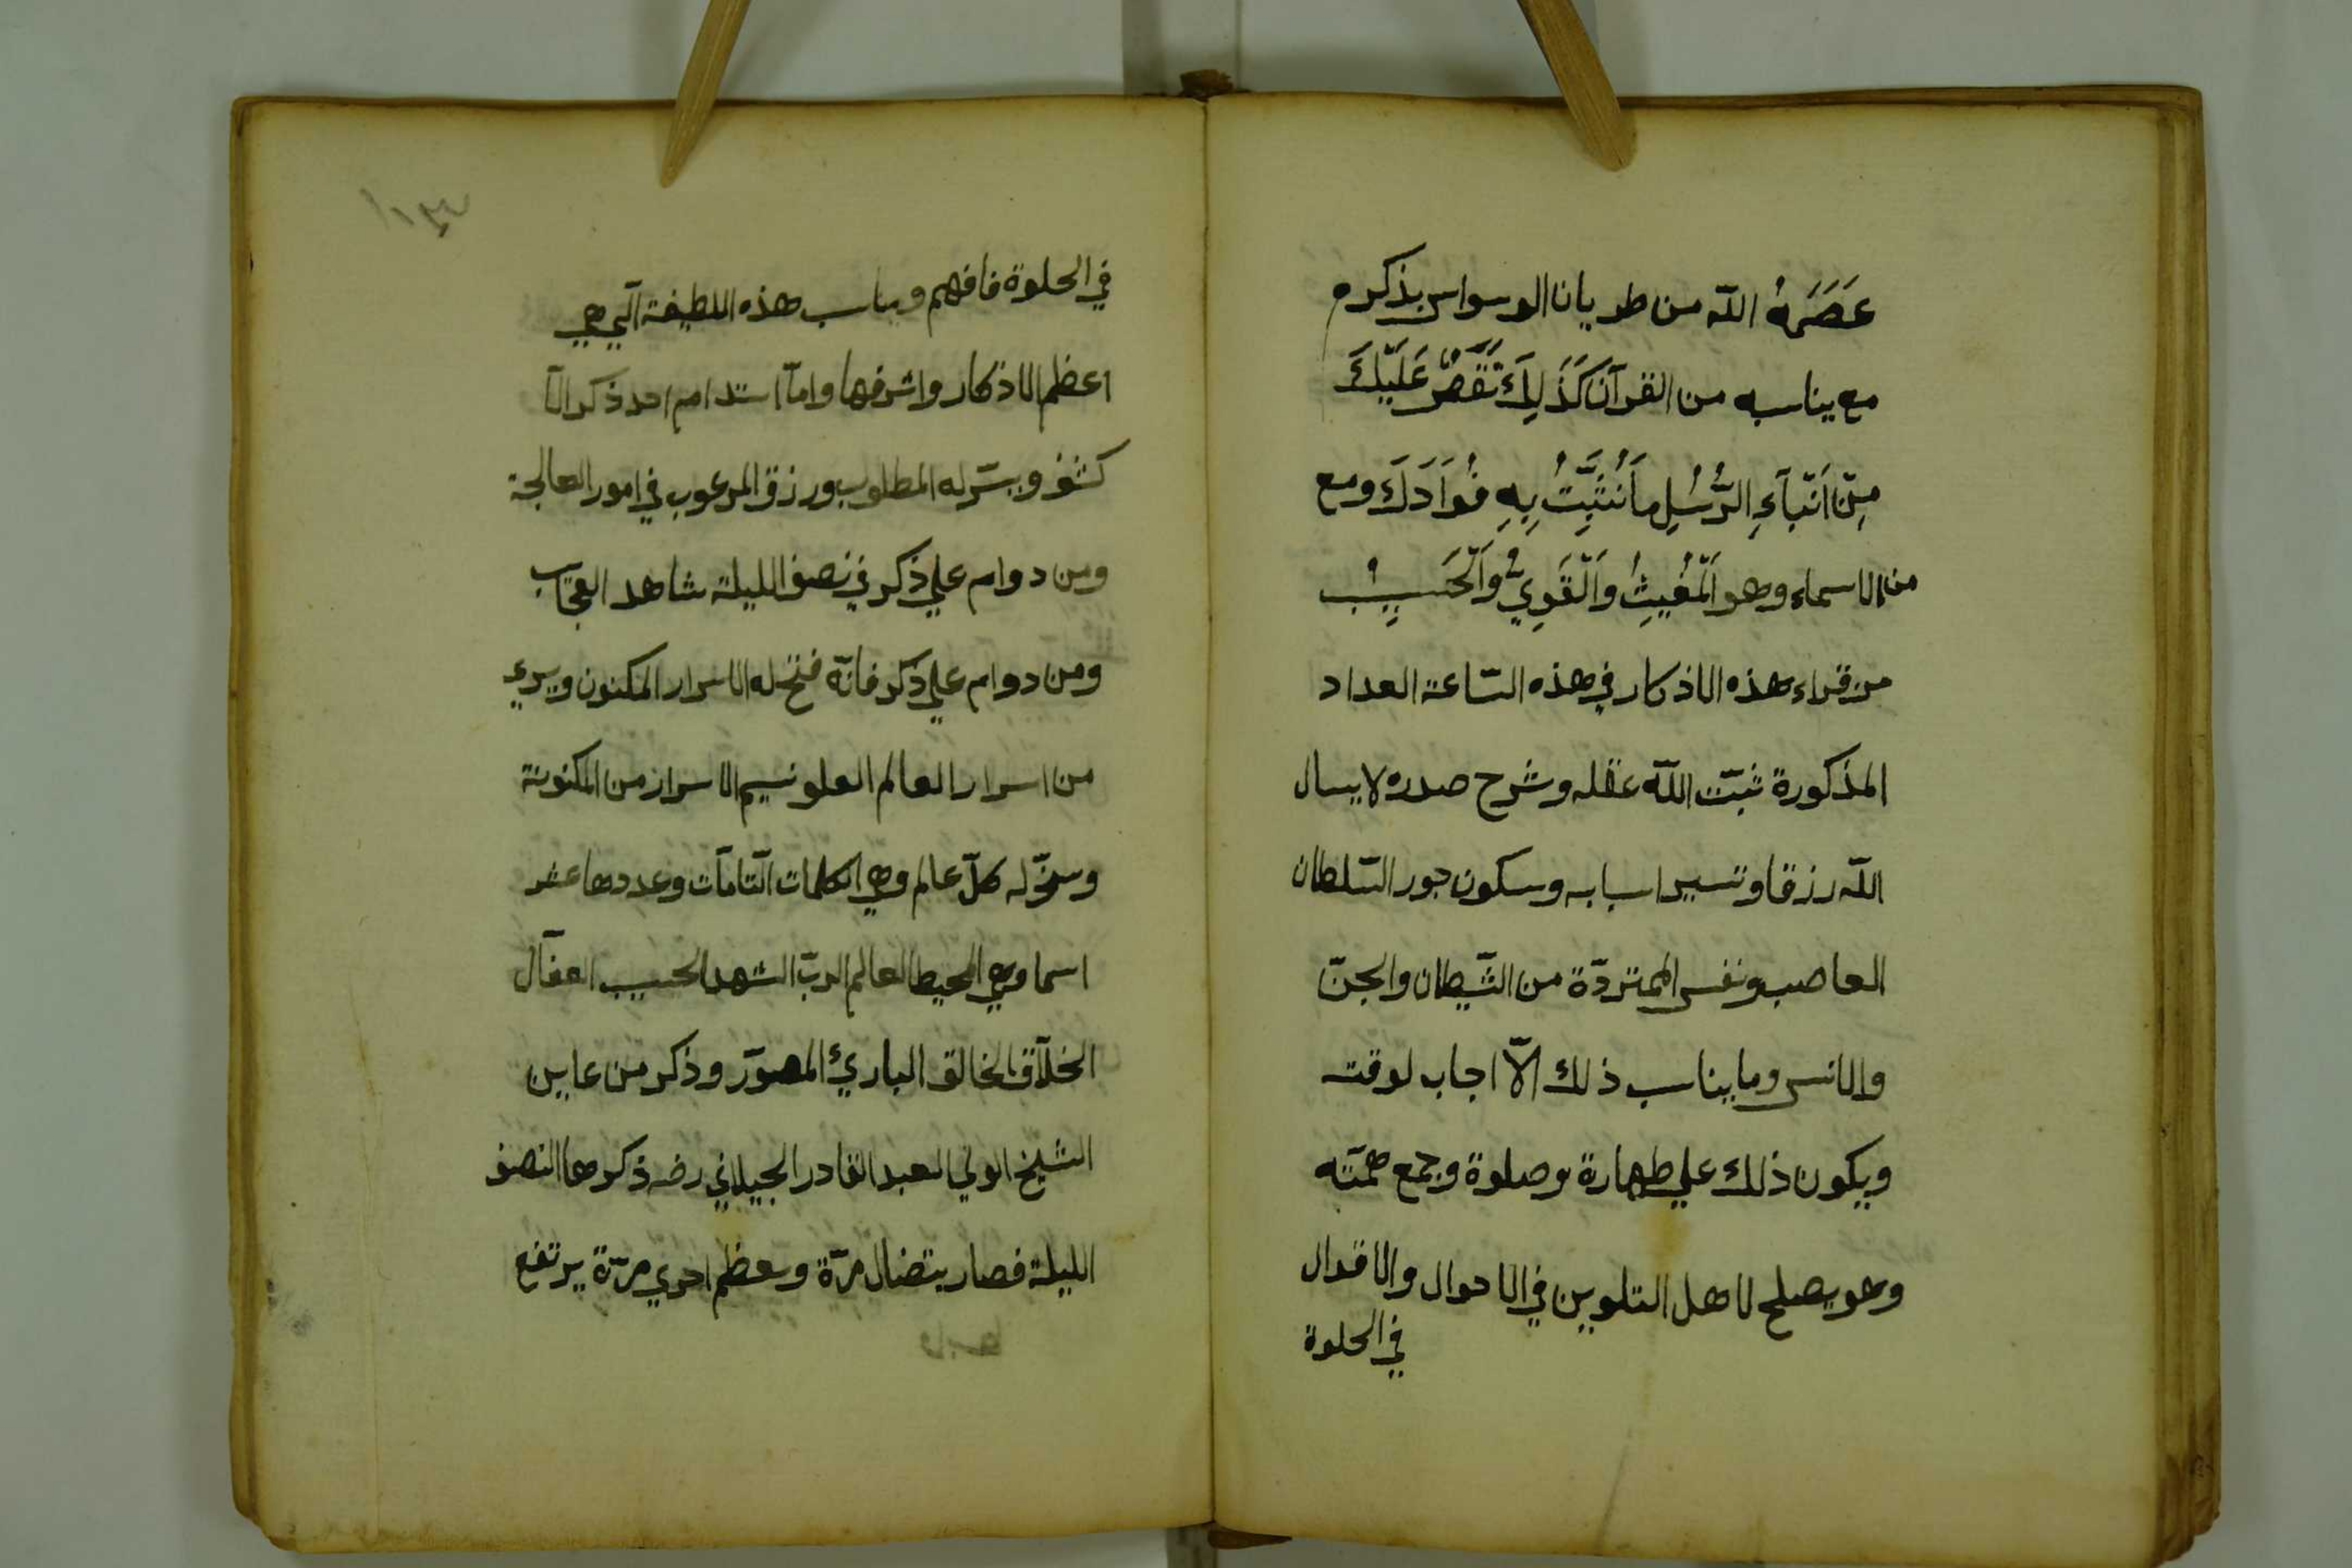 عَصَمَهُ الله من طريان الوسواس بذكره
مع يناسبه من القرآن كَذَلِكَ نَقُصُّ عَلَيْكَ
مِنْ اَنْبَآءِ الرُّسُلِ مَا نُثَبِّتُ بِهِ فُوَادَكَ ومع
من الاسماء وهو اَلْمُغِيثُ وَالْقَوِيُّ وَالْحَسِيبُ
من قراء هذه الاذكار في هذه السّاعة العداد
المذكورة ثبّت اللّه عقله وشرح صدره لا يسال
اللّه رزقا وتسير اسبابه وسكون جور السّلطان
العاصب ونفس المتردّة من الشّيطان والجنّ
والانس وما يناسب ذلك الاّ اجاب لوقته
ويكون ذلك علي طهارة وصلوة وجمع همّته
وهو يصلح لاهل التلوين في الاحوال والاقدال
في الحلوة
١٣
في الحلوة فافهم ويناسب هذه اللطيفة الّتي هي
اعظم الاذكار واشرفها وامّا استدام احد ذكر الّا
كشف ويسّر له المطلوب ورزق المرعوب في امور العالجة
ومن دوام علي ذكر في نصف الليلة شاهد العجّاب
ومن دوام علي ذكر فانّه فتح له الاسرار المكنون ويري
من اسرار العالم العلو نسيم الاسرار من المكنونة
وسخّر له كلّ عالم وهي الكلمات التّامّات وعددها عشر
اسما وهي المحيط العالم الربّ الشهد الحسيب الفعّال
الخلّاق الخالق الباريُ المصوّر وذكر من عاين
الشيخ الولي العبد القادر الجيلاني رضه ذكر هما النصف
الليلة فصار يتضال مرّة ويعظم اخري مرّة يرتفع